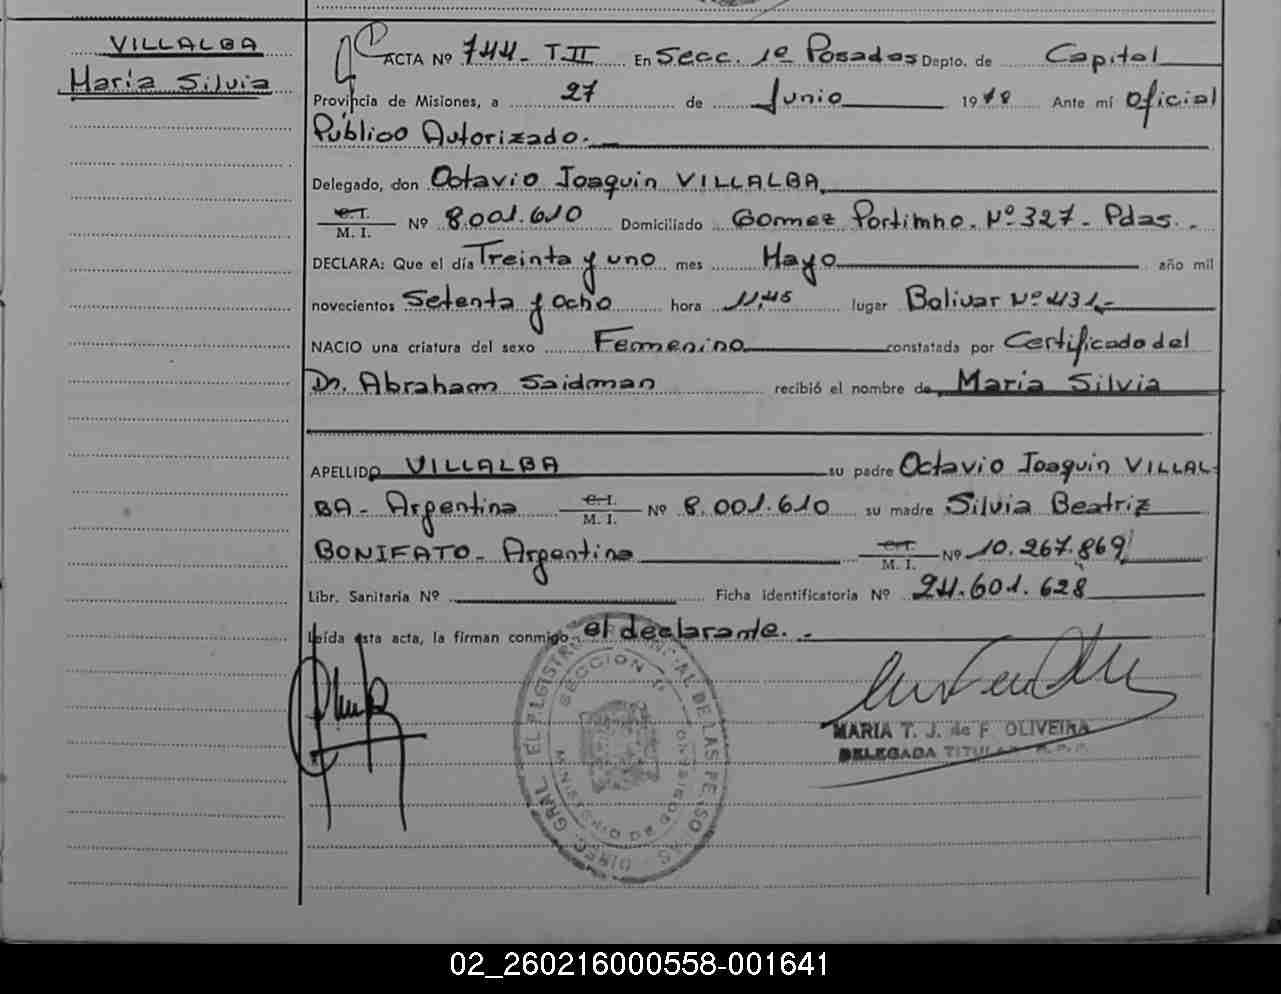 VILLALBA
María Silvia
ACTA Nº 744- T.II En Secc. 1º Posadas Depto. de Capital
Provincia de Misiones, a 27 de Junio 1978 Ante mí Oficial
Público Autorizado.-
Delegado, don Octavio Joaquin VILLALBA,
C.I.
M. I. Nº 8.001.610 Domiciliado Gomez Portinho. Nº 327- Pdas. -
DECLARA: Que el día Treinta y uno mes Mayo año mil
novecientos Setenta y ocho hora 11,45 lugar Bolivar Nº 431,-
NACIO una criatura del sexo Femenino constatada por Certificado del
Dr. Abraham Saidman recibió el nombre de María Silvia
APELLIDO VILLALBA su padre Octavio Joaquin VILLAL-
BA- Argentina C.I.
M. I. Nº 8.001.610 su madre Silvia Beatriz
BONIFATO- Argentina C.I.
M. I. Nº 10.267.869
Libr. Sanitaria Nº Ficha identificatoria Nº 24.601.628
Leída esta acta, la firman conmigo el declarante. -
DIREC. GRAL. EL REGISTRO PROVINCIAL DE LAS PERSONAS
SECCION 1º
MARIA T. J. de F. OLIVEIRA
DELEGADA TITULAR R.P.P.
02_260216000558-001641